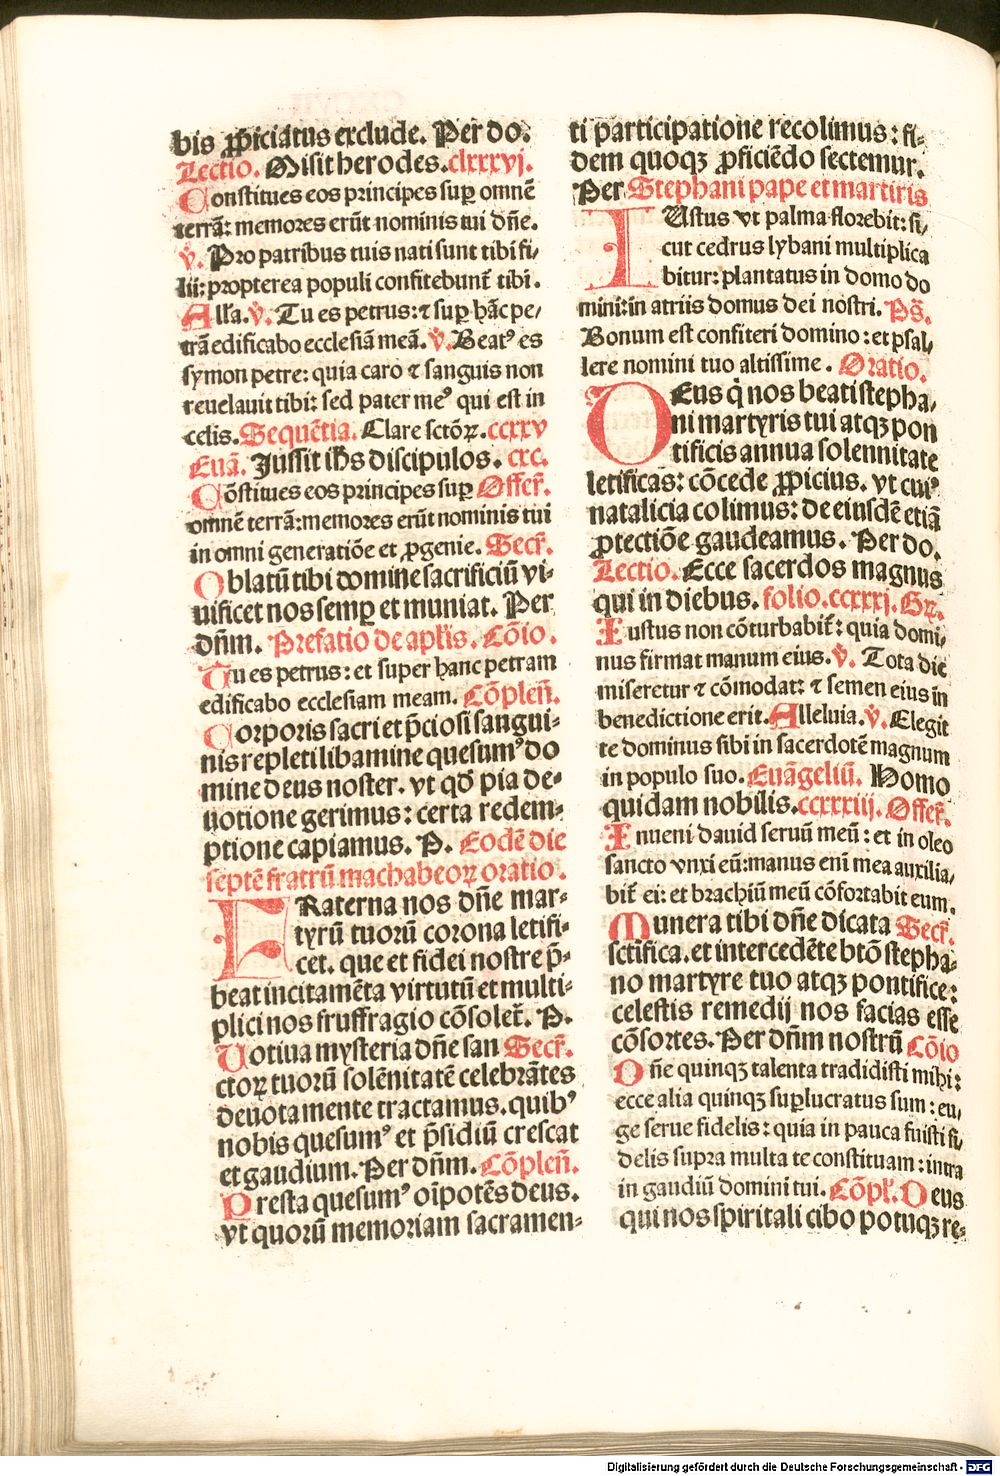 bis ꝓpiciatus exclude. Per do.
Lectio. Misit herodes. clxxxvj.
Constitues eos principes suꝑ omnē
terrā: memores erūt nominis tui dn̄e.
v̄. Pro patribus tuis nati sunt tibi fi⸗
lii: propterea populi confitebunt tibi.
Alla. v̄. Tu es petrus: ⁊ suꝑ hāc pe⸗
trā edificabo ecclesiā meā. v̄. Beatꝰ es
symon petre: quia caro ⁊ sanguis non
reuelauit tibi: sed pater meꝰ qui est in
celis. Sequētia. Clare sctōꝝ. ccxxv
Euā. Jussit ihs discipulos. cxc.
Cōstitues eos principes suꝑ Offer̄.
omnē terrā: memores erūt nominis tui
in omni generatiōe et ꝓgenie. Secr̄.
Oblatū tibi domine sacrificiū vi⸗
uificet nos semꝑ et muniat. Per
dn̄m. Prefatio de apl̄is. Cōio.
Tu es petrus: et super hanc petram
edificabo ecclesiam meam. Cōplen̄.
Corporis sacri et p̄ciosi sangui⸗
nis repleti libamine quesumꝰ do
mine deus noster. vt qd̄ pia de⸗
uotione gerimus: certa redem⸗
ptione capiamus. P. Eodē die
septē fratrū machabeoꝝ oratio.
FRaterna nos dn̄e mar⸗
tyrū tuorū corona letifi⸗
cet. que et fidei nostre p̄⸗
beat incitamēta virtutū et multi⸗
plici nos fruffragio cōsolet̄. P.
Uotiua mysteria dn̄e san Secr̄.
ctoꝝ tuorū solēnitatē celebrātes
deuota mente tractamus. quibꝰ
nobis quesumꝰ et p̄sidiū crescat
et gaudium. Per dn̄m. Cōplen̄.
Presta quesumꝰ oīpotēs deus.
vt quorū memoriam sacramen⸗
ti participatione recolimus: fi⸗
dem quoqꝫ ꝓficiēdo sectemur.
Per Stephani pape et martiris
IUstus vt palma florebit: si⸗
cut cedrus lybani multiplica
bitur: plantatus in domo do
mini: in atriis domus dei nostri. Ps̄.
Bonum est confiteri domino: et psal⸗
lere nomini tuo altissime. Oratio.
DEus q̄ nos beati stepha⸗
ni martyris tui atqꝫ pon
tificis annua solennitate
letificas: cōcede ꝓpicius. vt cuiꝰ
natalicia colimus: de eiusdē etiā
ꝓtectiōe gaudeamus. Per do.
Lectio. Ecce sacerdos magnus
qui in diebus. folio. ccxxxj. Gr̄.
Iustus non cōturbabit̄: quia domi⸗
nus firmat manum eius. v̄. Tota die
miseretur ⁊ cōmodat: ⁊ semen eius in
benedictione erit. Alleluia. v̄. Elegit
te dominus sibi in sacerdotē magnum
in populo suo. Euāgeliū. Homo
quidam nobilis. ccxxxiij. Offer̄.
Inueni dauid seruū meū: et in oleo
sancto vnxi eū: manus eni mea auxilia⸗
bit̄ ei: et brachiū meū cōfortabit eum.
Munera tibi dn̄e dicata Secr̄.
sctifica. et intercedēte btō stepha⸗
no martyre tuo atqꝫ pontifice:
celestis remedij nos facias esse
cōsortes. Per dn̄m nostrū Cōio
Dn̄e quinqꝫ talenta tradidisti mihi:
ecce alia quinqꝫ suꝑlucratus sum: eu⸗
ge serue fidelis: quia in pauca fuisti fi⸗
delis supra multa te constituam: intra
in gaudiū domini tui. Cōpl̄. Deus
qui nos spiritali cibo potuqꝫ re⸗
Digitalisierung gefördert durch die Deutsche Forschungsgemeinschaft - DFG